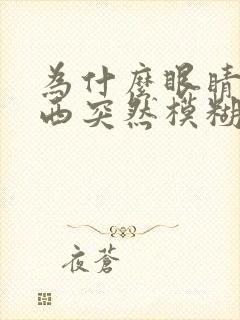 為什麼眼睛
西突然模糊
夜蒼